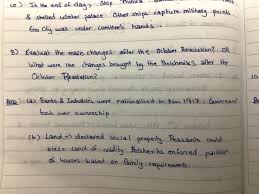 (c) In the end of day, Ship 'Aurora'
& shelled winter palace. Other ships capture military points
Eoo City was under comittee's hands.
8) Evaluat the main changes after the October Revolution? OR
What were the changes brought by the Bolsheviks after the
October Revolution?
Ans (a) Banks & Industries were nationalised in Nov 1917. Government
took over ownership.
(b) Land declared social property. Peasants could
seize land of nobility. Bolsheviks enforced partition
of houses based on family requirements.